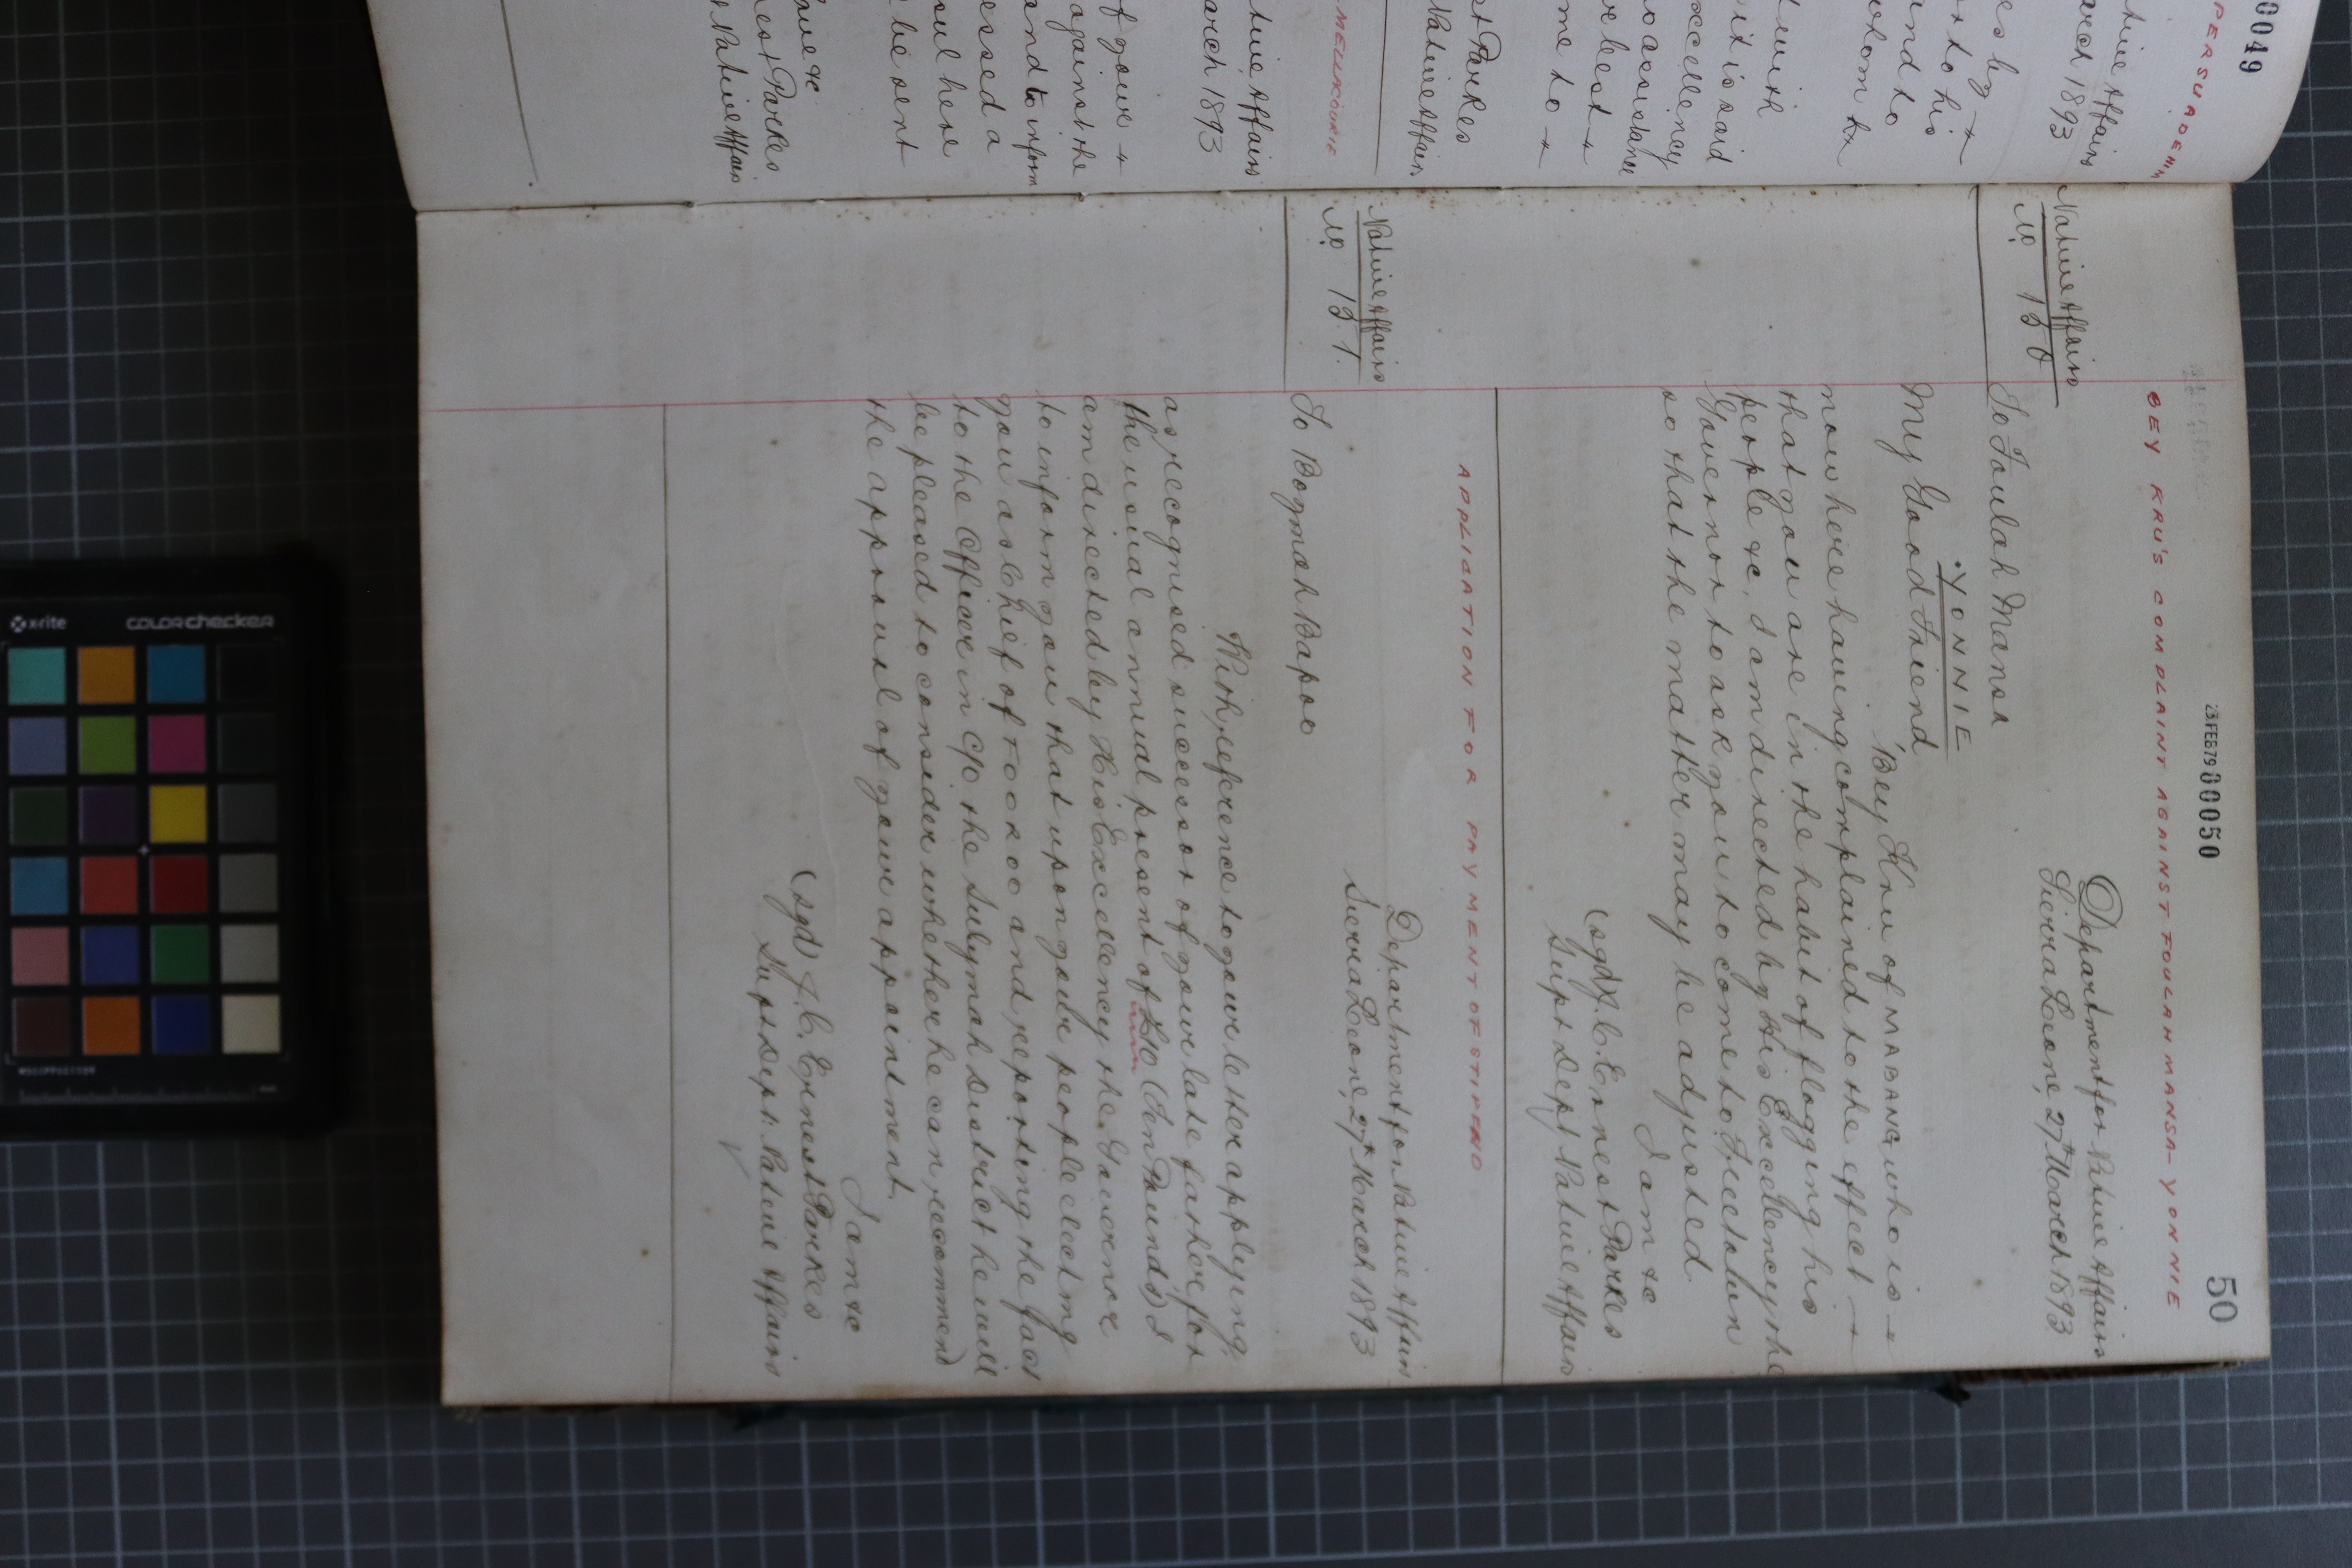 00049
PERSUADE
tive Affairs
arch 1893
es by
rs to his
and to
whom he
t with
it is said
xcellency
o assistance
ve best
me to
st Parkes
Native Affairs
MELLIKOURIE
tive Affairs
arch 1893
f your
against the
and to inform
essed a
oul here
be sent
est Parkes
Native Affairs
23FEB79 00050
50
BEY KRU'S COMPLAINT AGAINST FOULAH MANSA - YONNIE
Native Affairs
No 150
Department for Native Affairs
Sierra Leone, 27th March 1893
To Foulah Mansa
YONNIE
My Good Friend
Bey Kru of MABANG who is
now here having complained to the effect
that you are in the habit of flogging his
people &c, I am directed by His Excellency the
Governor to ask you to come to Freetown
so that the matter may be adjusted
I am &c
(sgd) J. C. Ernest Parkes
Supt Dept Native Affairs
APPLICATION FOR PAYMENT OF STIPEND
Native Affairs
No 151.
Department for Native Affairs
Sierra Leone, 27th March 1893
To Bogmah Bapoo
With reference to your letter applying,
as recognised successor of your late father, for
the usual annual present of £10 (Ten Pounds) I
am directed by His Excellency the Governor
to inform you that upon your people electing
you as Chief of TOOKOO and reporting the fact
to the Officer in C/o the Sulymah District he will
be pleased to consider whether he can recommend
the approval of your appointment.
I am &c
(sgd) J. C. Ernest Parkes
Supt Dept. Native Affairs
x-rite
colorchecker